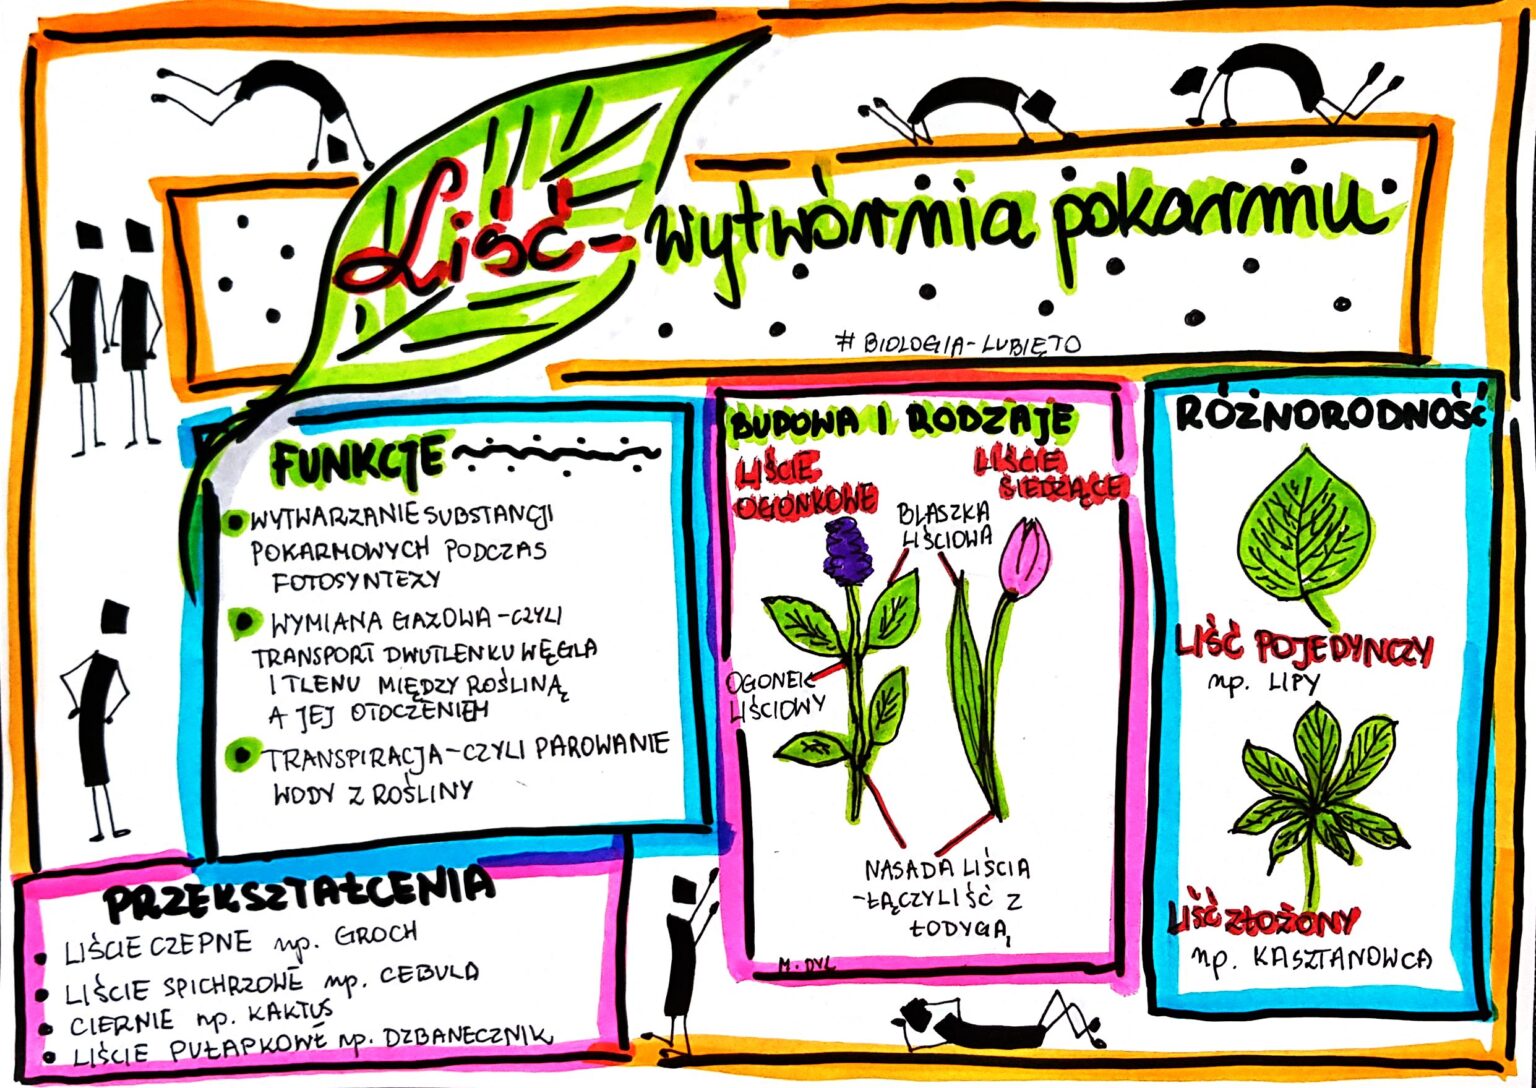 Liść- wytwórnia pokarmu
# BIOLOGIA-LUBIĘTO
FUNKCJE
WYTWARZANIE SUBSTANCJI
POKARMOWYCH PODCZAS
FOTOSYNTEZY
WYMIANA GAZOWA - CZYLI
TRANSPORT DWUTLENKU WĘGLA
I TLENU MIĘDZY ROŚLINĄ
A JEJ OTOCZENIEM
TRANSPIRACJA - CZYLI PAROWANIE
WODY Z ROŚLINY
PRZEKSZTAŁCENIA
LIŚCIE CZEPNE np. GROCH
LIŚCIE SPICHRZOWE np. CEBULA
CIERNIE np. KAKTUS
LIŚCIE PUŁAPKOWE np. DZBANECZNIK
BUDOWA I RODZAJE
LIŚCIE
OGONKOWE
LIŚCIE
SIEDZĄCE
BLASZKA
LIŚCIOWA
OGONEK
LIŚCIOWY
NASADA LIŚCIA
-ŁĄCZY LIŚĆ Z
ŁODYGĄ
M. DYL
RÓŻNORODNOŚĆ
LIŚĆ POJEDYNCZY
np. LIPY
LIŚĆ ZŁOŻONY
np. KASZTANOWCA